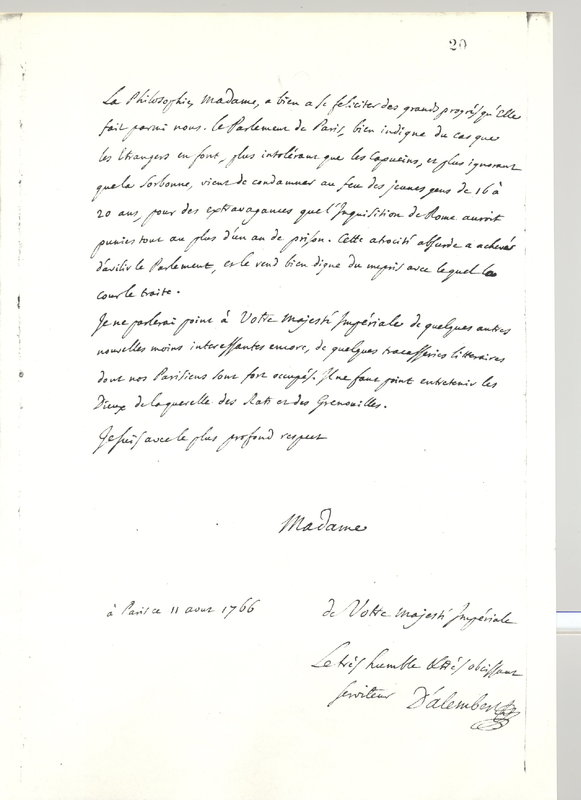 20
La Philosophie, Madame, a bien a se feliciter des grands progrès qu'elle
fait parmi nous. le Parlement de Paris, bien indigne du cas que
les Etrangers en font, plus intolérant que les Capucins, et plus ignorant
que la Sorbonne, vient de condamner au feu des jeunes gens de 16 à
20 ans, pour des extravagances que l'Inquisition de Rome auroit
punies tout au plus d'un an de prison. Cette atrocité absurde a achevé
d'avilir le Parlement, et le rend bien digne du mepris avec lequel la
cour le traite.
Je ne parlerai point à Votre Majesté Impériale de quelques autres
nouvelles moins interessantes encore, de quelques tracasseries litteraires
dont nos Parisiens sont fort occupés. Il ne faut point entretenir les
Dieux de la querelle des Rats et des Grenouilles.
Je suis avec le plus profond respect
Madame
à Paris ce 11 aout 1766
de Votre Majesté Impériale
Le très humble et très obeissant
serviteur D'alembert